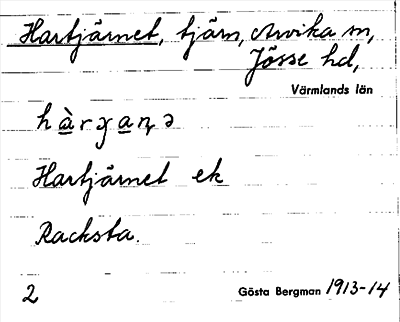 Hartjärnet, tjärn, Arvika sn,
Jösse hd,
Värmlands län
Hartjärnet ek
Racksta.
2
Gösta Bergman 1913-14